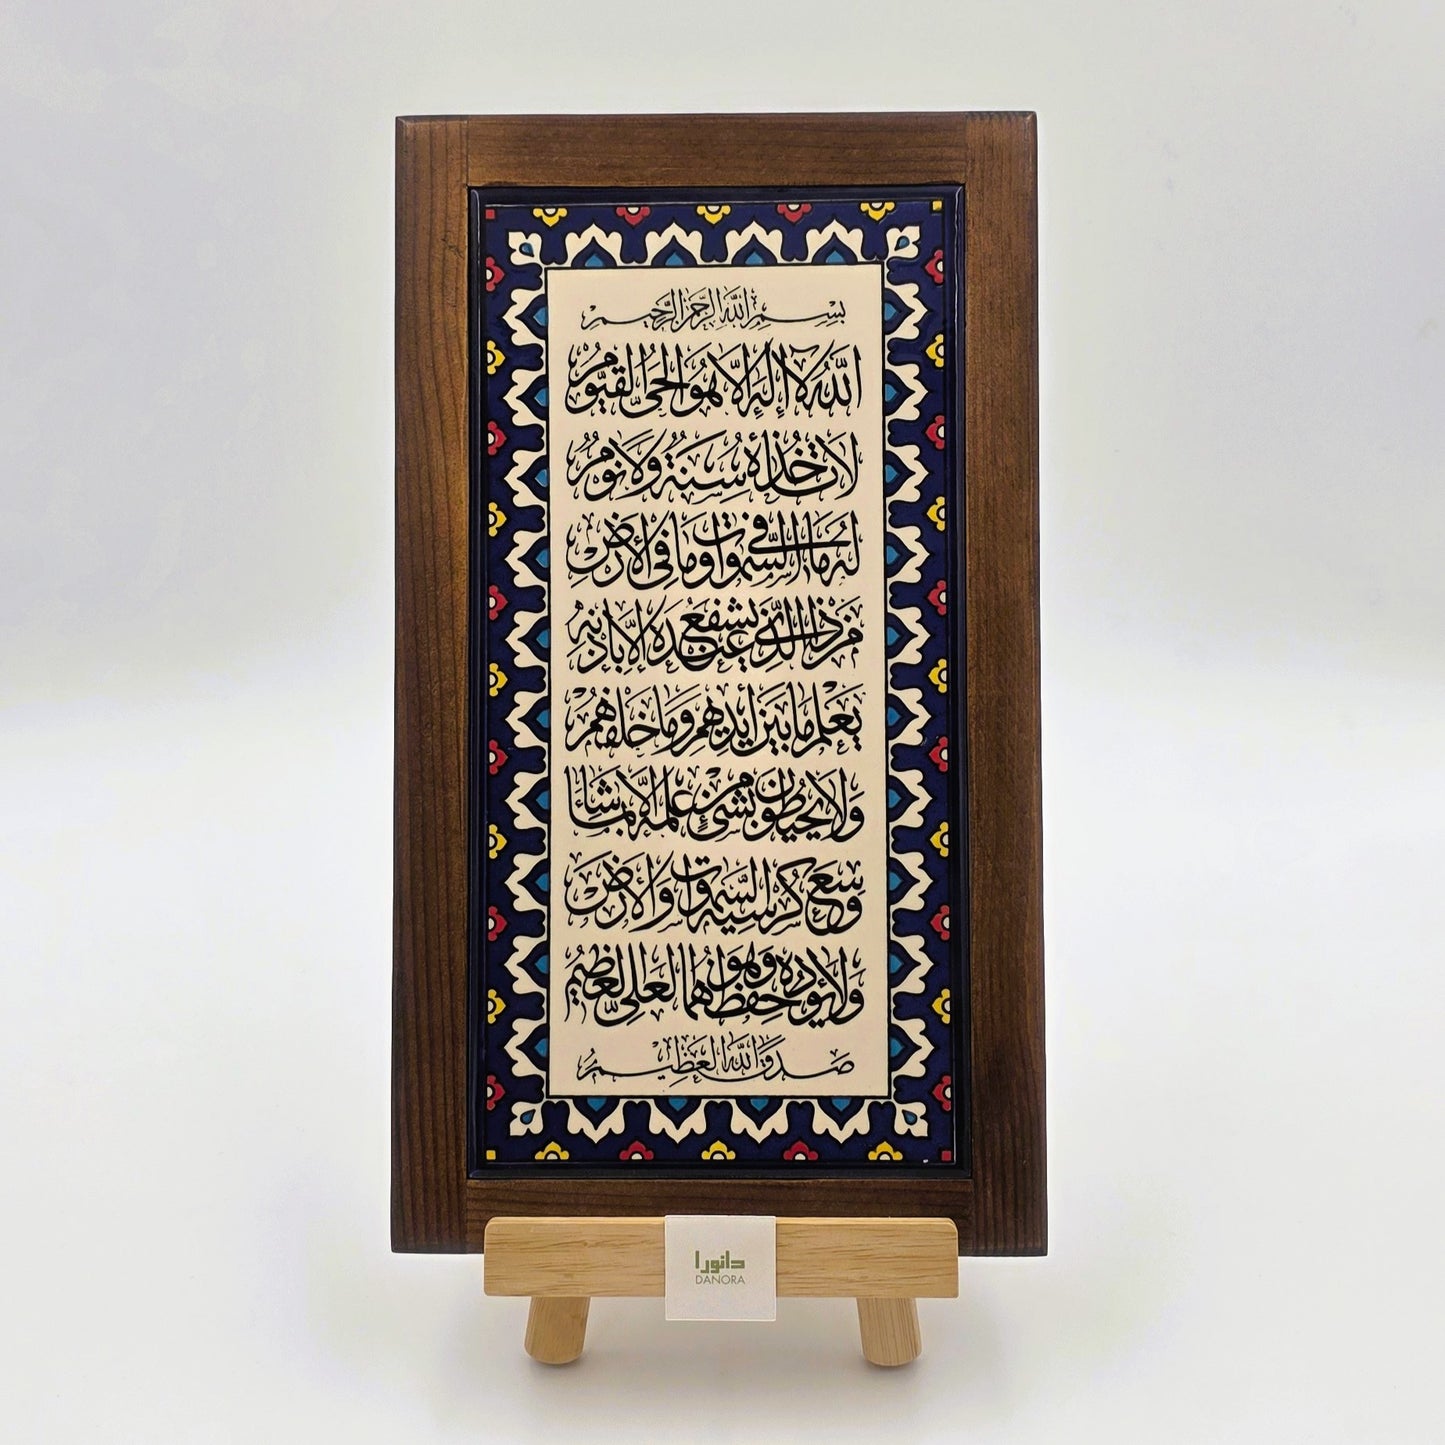 بِسْمِ اللَّهِ الرَّحْمَٰنِ الرَّحِيمِ
اللَّهُ لَا إِلَٰهَ إِلَّا هُوَ الْحَيُّ الْقَيُّومُ
لَا تَأْخُذُهُ سِنَةٌ وَلَا نَوْمٌ
لَهُ مَا فِي السَّمَٰوَاتِ وَمَا فِي الْأَرْضِ
مَنْ ذَا الَّذِي يَشْفَعُ عِنْدَهُ إِلَّا بِإِذْنِهِ
يَعْلَمُ مَا بَيْنَ أَيْدِيهِمْ وَمَا خَلْفَهُمْ
وَلَا يُحِيطُونَ بِشَيْءٍ مِنْ عِلْمِهِ إِلَّا بِمَا شَاءَ
وَسِعَ كُرْسِيُّهُ السَّمَٰوَاتِ وَالْأَرْضَ
وَلَا يَئُودُهُ حِفْظُهُمَا وَهُوَ الْعَلِيُّ الْعَظِيمُ
صَدَقَ اللَّهُ الْعَظِيمُ
دانورا
DANORA